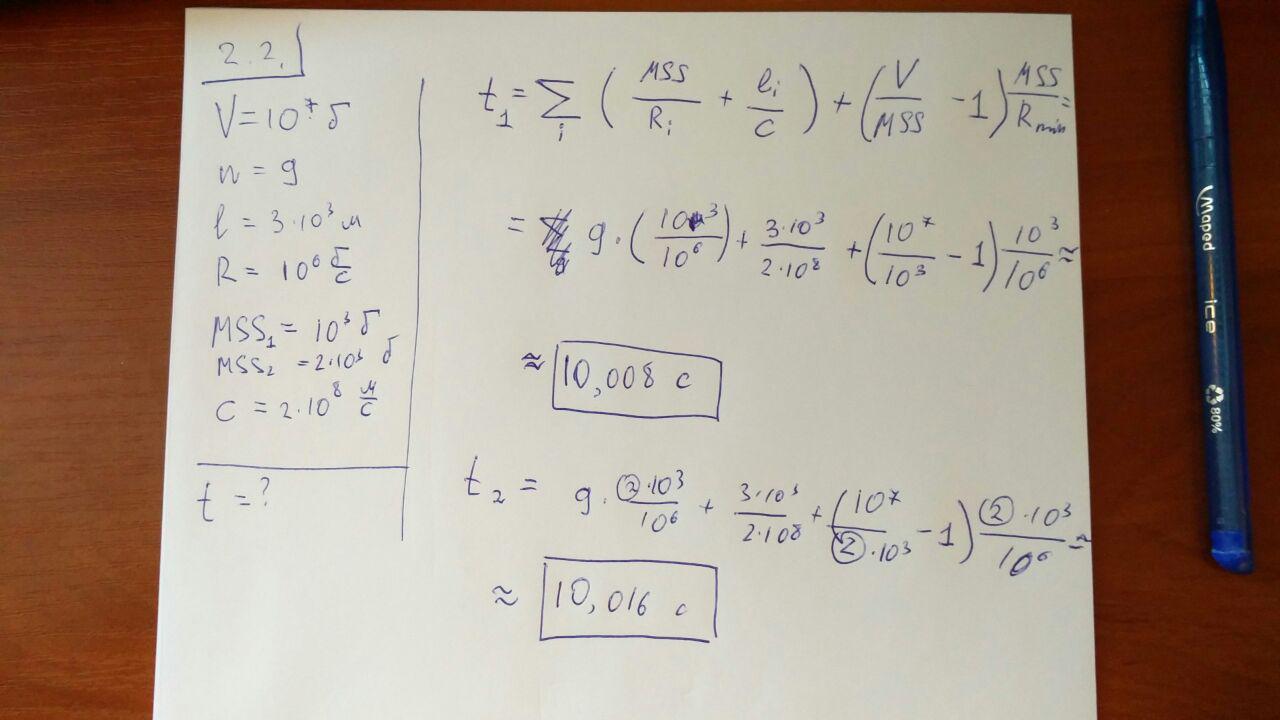 2.2.
V = 10⁷ б
n = 9
l = 3·10³ м
R = 10⁶ б/с
MSS₁ = 10³ б
MSS₂ = 2·10³ б
c = 2·10⁸ м/с
t = ?
t₁ = ∑ᵢ (MSS/Rᵢ + lᵢ/c) + (V/MSS - 1) MSS/Rmin =
= 9·(10³/10⁶) + 3·10³/2·10⁸ + (10⁷/10³ - 1) 10³/10⁶ ≈
≈ 10,008 с
t₂ = 9·2·10³/10⁶ + 3·10³/2·10⁸ + (10⁷/2·10³ - 1) 2·10³/10⁶ ≈
≈ 10,016 с
Maped ice
80%